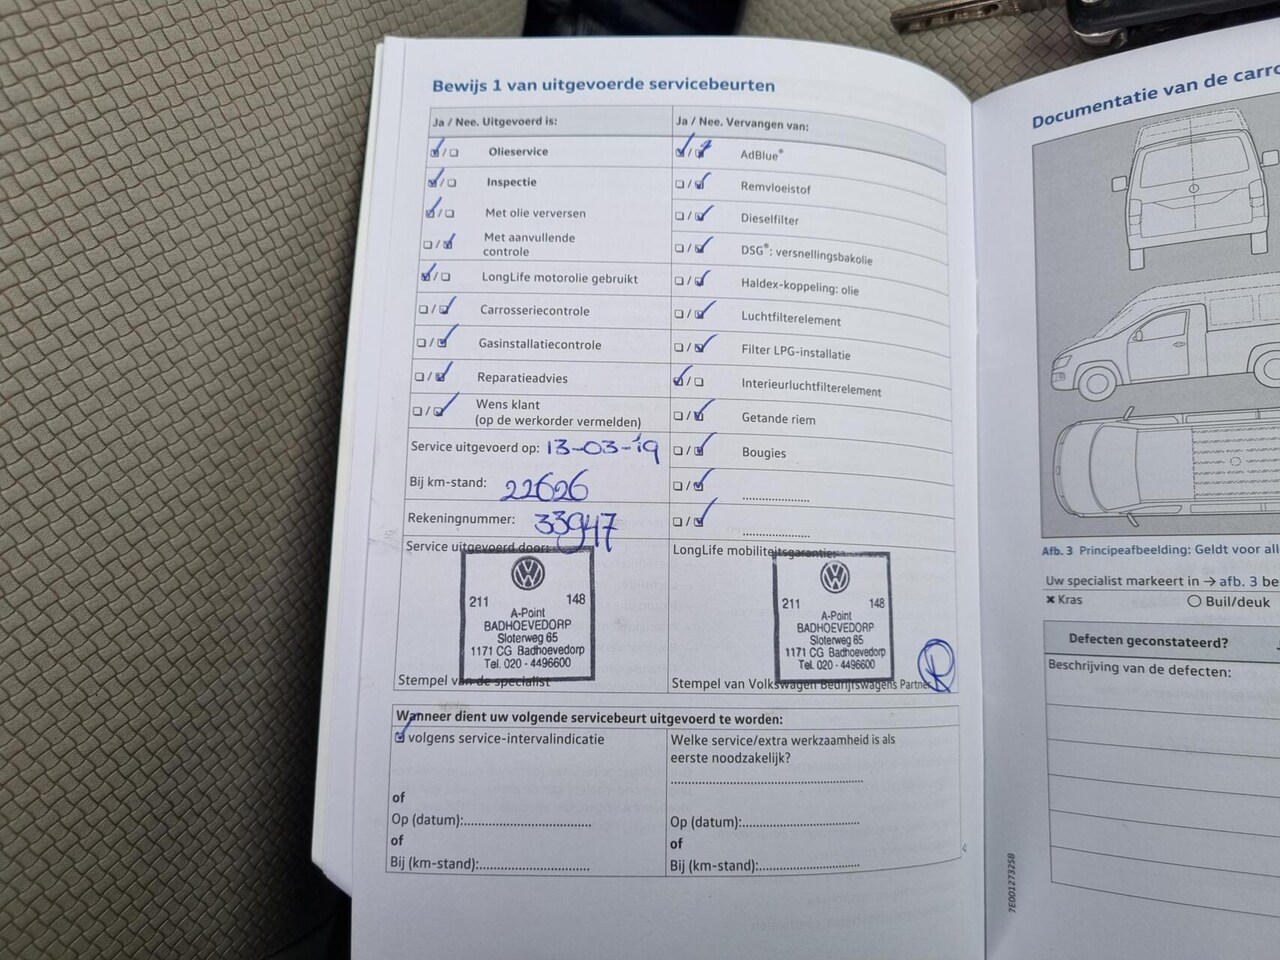 Bewijs 1 van uitgevoerde servicebeurten
Ja / Nee. Uitgevoerd is:
Olieservice
Inspectie
Met olie verversen
Met aanvullende
controle
LongLife motorolie gebruikt
Carrosseriecontrole
Gasinstallatiecontrole
Reparatieadvies
Wens klant
(op de werkorder vermelden)
Service uitgevoerd op: 13-03-19
Bij km-stand: 22626
Rekeningnummer: 33947
Service uitgevoerd door:
VW
211 148
A-Point
BADHOEVEDORP
Sloterweg 65
1171 CG Badhoevedorp
Tel. 020 - 4496600
Stempel van de specialist
Ja / Nee. Vervangen van:
AdBlue®
Remvloeistof
Dieselfilter
DSG®: versnellingsbakolie
Haldex-koppeling: olie
Luchtfilterelement
Filter LPG-installatie
Interieurluchtfilterelement
Getande riem
Bougies
LongLife mobiliteitsgarantie:
VW
211 148
A-Point
BADHOEVEDORP
Sloterweg 65
1171 CG Badhoevedorp
Tel. 020 - 4496600
Stempel van Volkswagen Bedrijfswagens Partner
Wanneer dient uw volgende servicebeurt uitgevoerd te worden:
volgens service-intervalindicatie
of
Op (datum):
of
Bij (km-stand):
Welke service/extra werkzaamheid is als
eerste noodzakelijk?
Op (datum):
of
Bij (km-stand):
Documentatie van de carro
Afb. 3 Principeafbeelding: Geldt voor all
Uw specialist markeert in → afb. 3 be
✖ Kras ○ Buil/deuk
Defecten geconstateerd?
Beschrijving van de defecten:
7E0012732SB